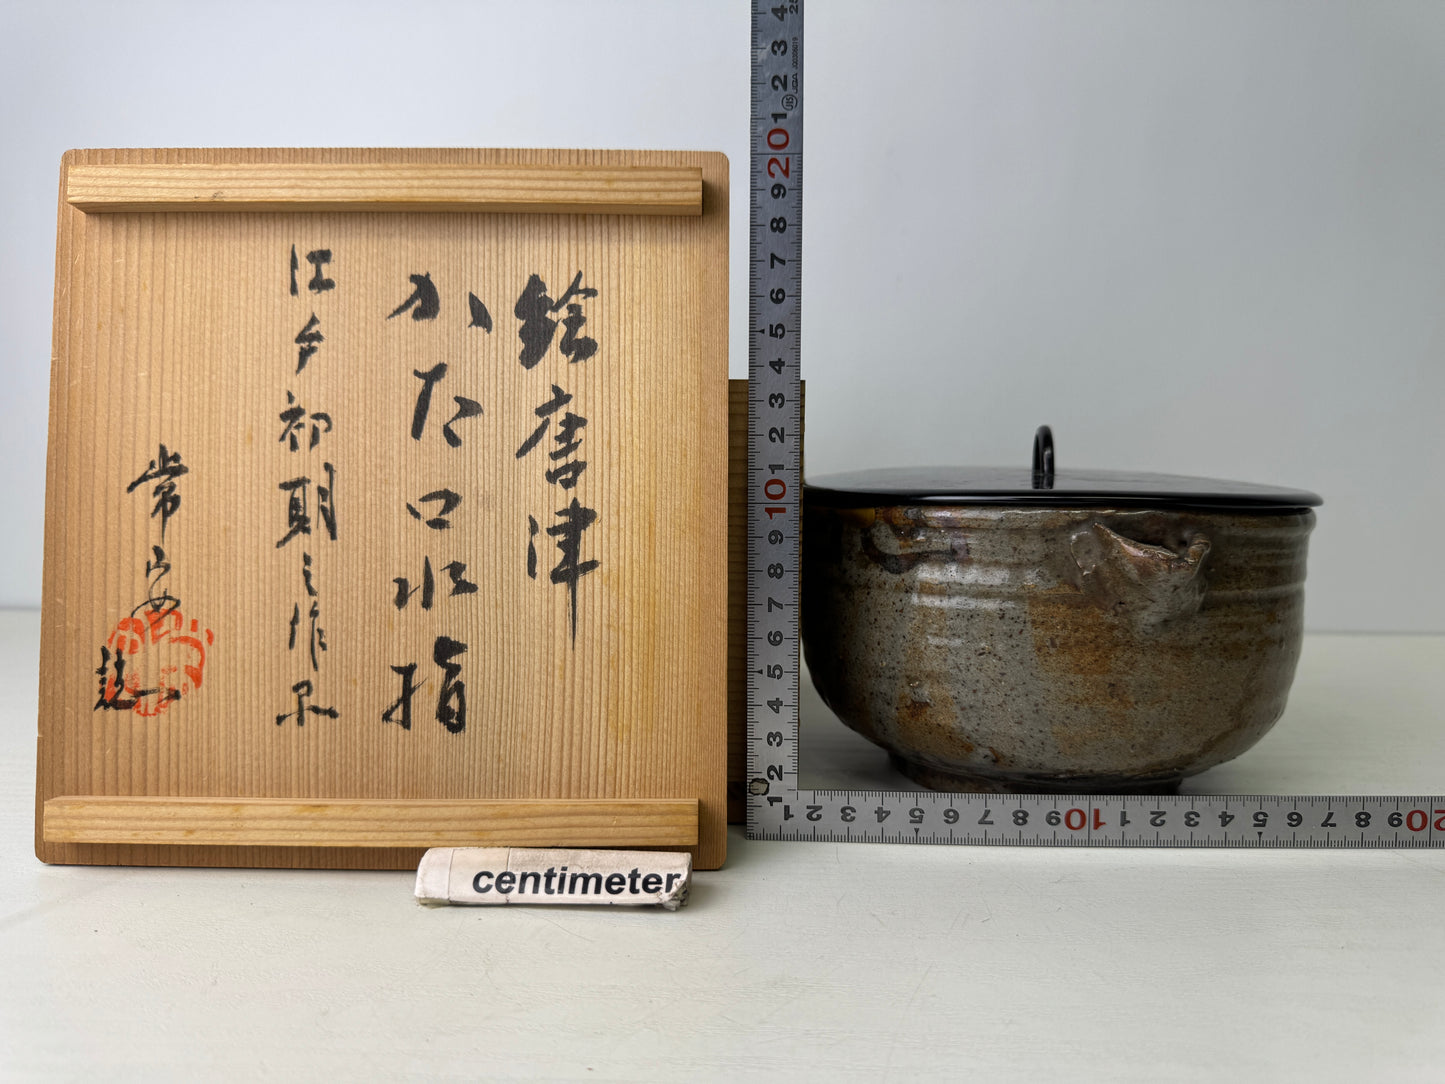 絵唐津
かた口水指
江戸初期之作品
常
centimeter
1 2 3 4 5 6 7 8 9 10 1 2 3 4 5 6 7 8 9 20 1 2 3 4
JIS JGA JQ0306019
1 2 3 4 5 6 7 8 9 10 1 2 3 4 5 6 7 8 9 20